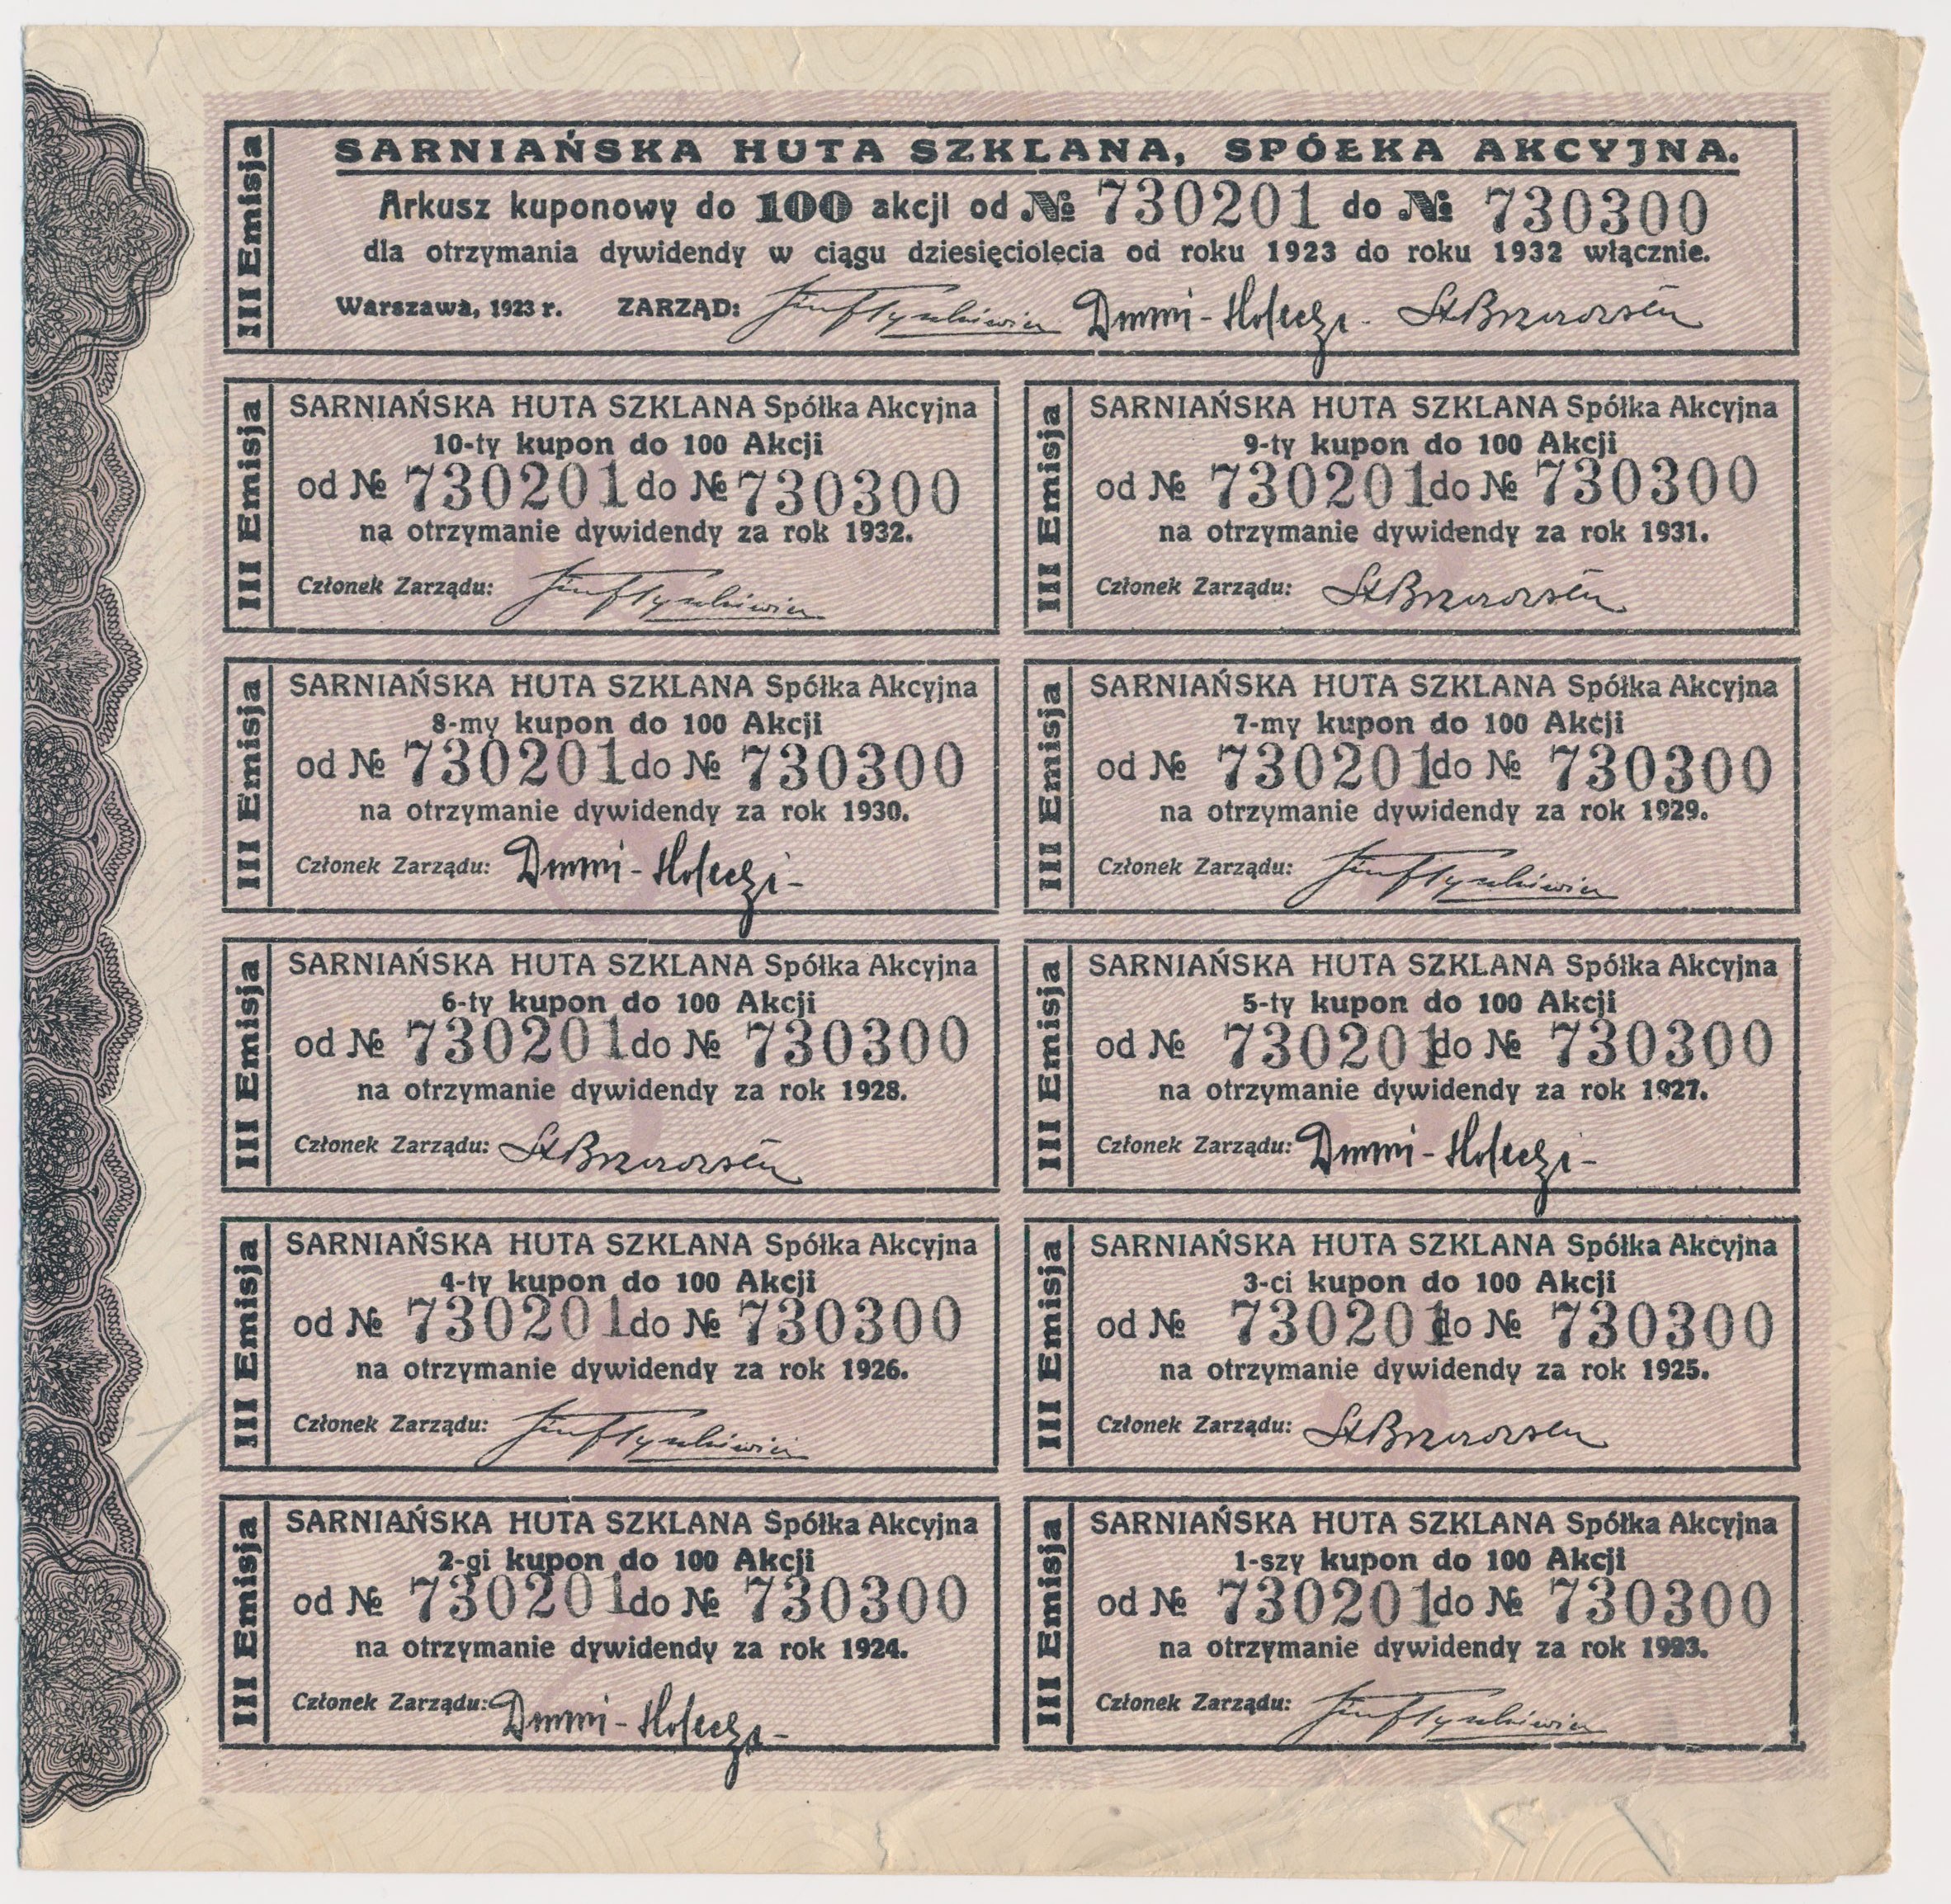 III Emisja
SARNIAŃSKA HUTA SZKLANA, SPÓŁKA AKCYJNA.
Arkusz kuponowy do 100 akcji od № 730201 do № 730300
dla otrzymania dywidendy w ciągu dziesięciolecia od roku 1923 do roku 1932 włącznie.
Warszawa, 1923 r. ZARZĄD:
III Emisja
SARNIAŃSKA HUTA SZKLANA Spółka Akcyjna
10-ty kupon do 100 Akcji
od № 730201 do № 730300
na otrzymanie dywidendy za rok 1932.
Członek Zarządu:
III Emisja
SARNIAŃSKA HUTA SZKLANA Spółka Akcyjna
9-ty kupon do 100 Akcji
od № 730201 do № 730300
na otrzymanie dywidendy za rok 1931.
Członek Zarządu:
III Emisja
SARNIAŃSKA HUTA SZKLANA Spółka Akcyjna
8-my kupon do 100 Akcji
od № 730201 do № 730300
na otrzymanie dywidendy za rok 1930.
Członek Zarządu:
III Emisja
SARNIAŃSKA HUTA SZKLANA Spółka Akcyjna
7-my kupon do 100 Akcji
od № 730201 do № 730300
na otrzymanie dywidendy za rok 1929.
Członek Zarządu:
III Emisja
SARNIAŃSKA HUTA SZKLANA Spółka Akcyjna
6-ty kupon do 100 Akcji
od № 730201 do № 730300
na otrzymanie dywidendy za rok 1928.
Członek Zarządu:
III Emisja
SARNIAŃSKA HUTA SZKLANA Spółka Akcyjna
5-ty kupon do 100 Akcji
od № 730201 do № 730300
na otrzymanie dywidendy za rok 1927.
Członek Zarządu:
III Emisja
SARNIAŃSKA HUTA SZKLANA Spółka Akcyjna
4-ty kupon do 100 Akcji
od № 730201 do № 730300
na otrzymanie dywidendy za rok 1926.
Członek Zarządu:
III Emisja
SARNIAŃSKA HUTA SZKLANA Spółka Akcyjna
3-ci kupon do 100 Akcji
od № 730201 do № 730300
na otrzymanie dywidendy za rok 1925.
Członek Zarządu:
III Emisja
SARNIAŃSKA HUTA SZKLANA Spółka Akcyjna
2-gi kupon do 100 Akcji
od № 730201 do № 730300
na otrzymanie dywidendy za rok 1924.
Członek Zarządu:
III Emisja
SARNIAŃSKA HUTA SZKLANA Spółka Akcyjna
1-szy kupon do 100 Akcji
od № 730201 do № 730300
na otrzymanie dywidendy za rok 1923.
Członek Zarządu: